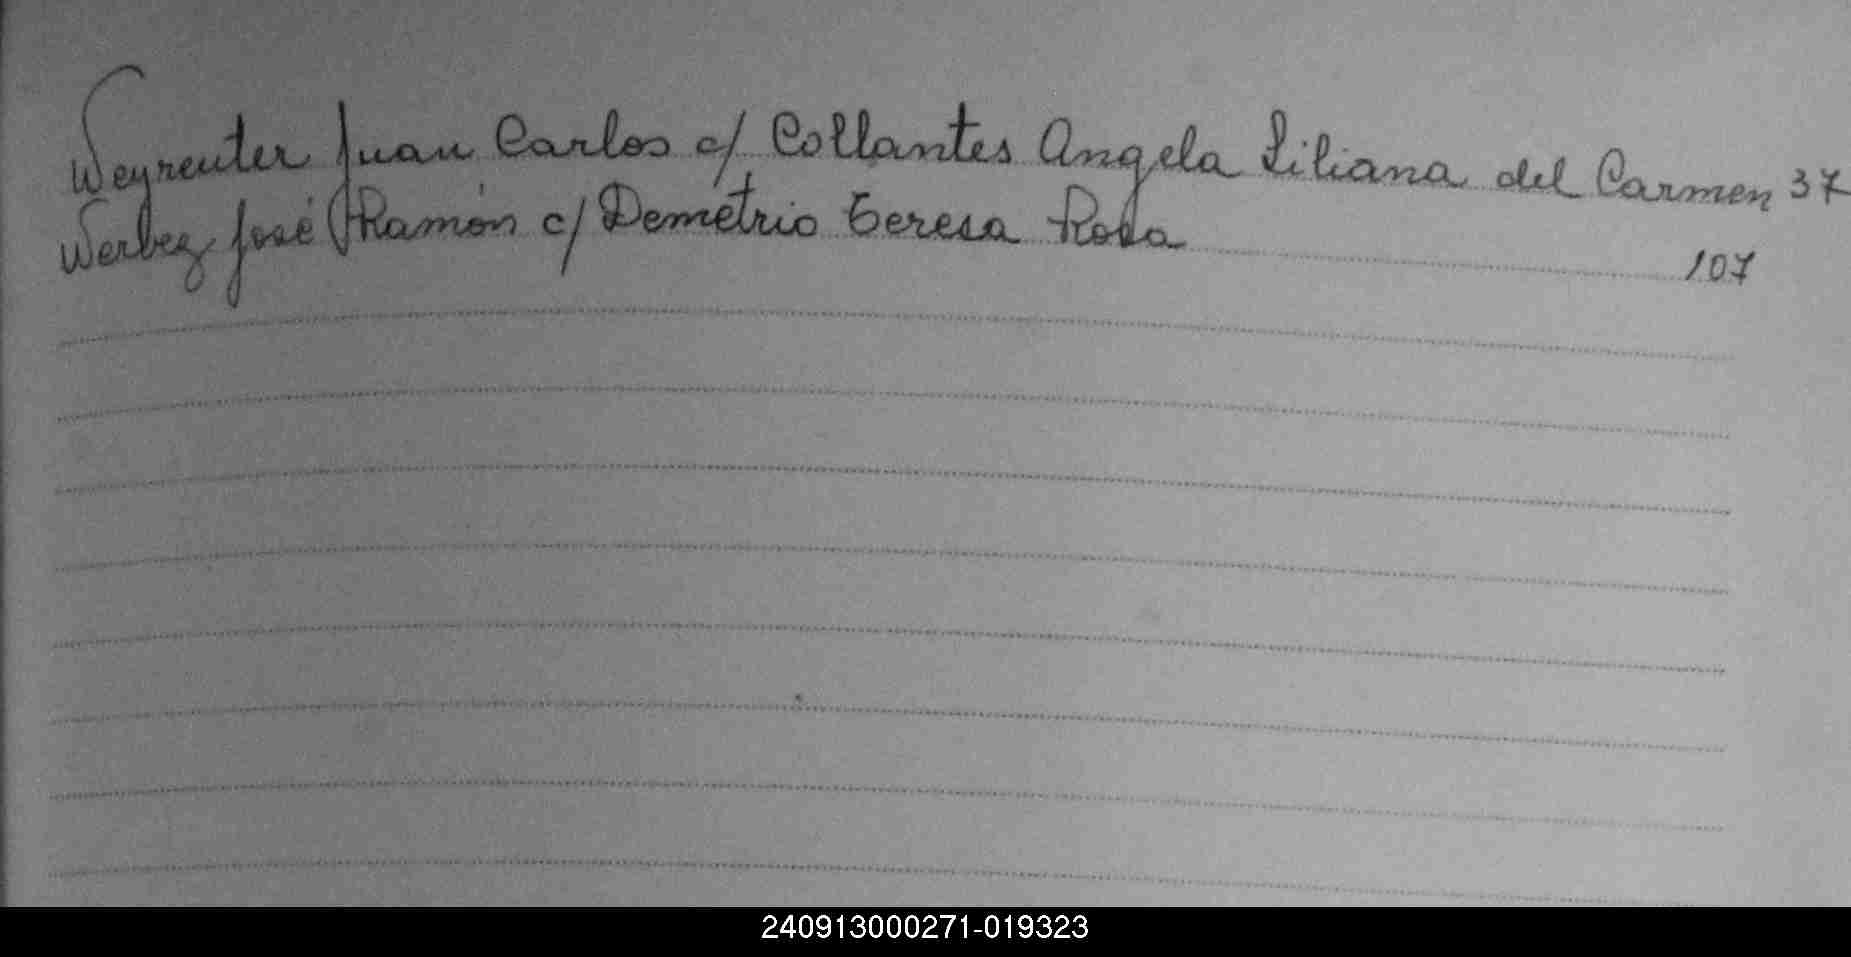 Weyreuter Juan Carlos c/ Collantes Angela Liliana del Carmen 37
Werbez José Ramón c/ Demetrio Teresa Rosa 107
240913000271-019323